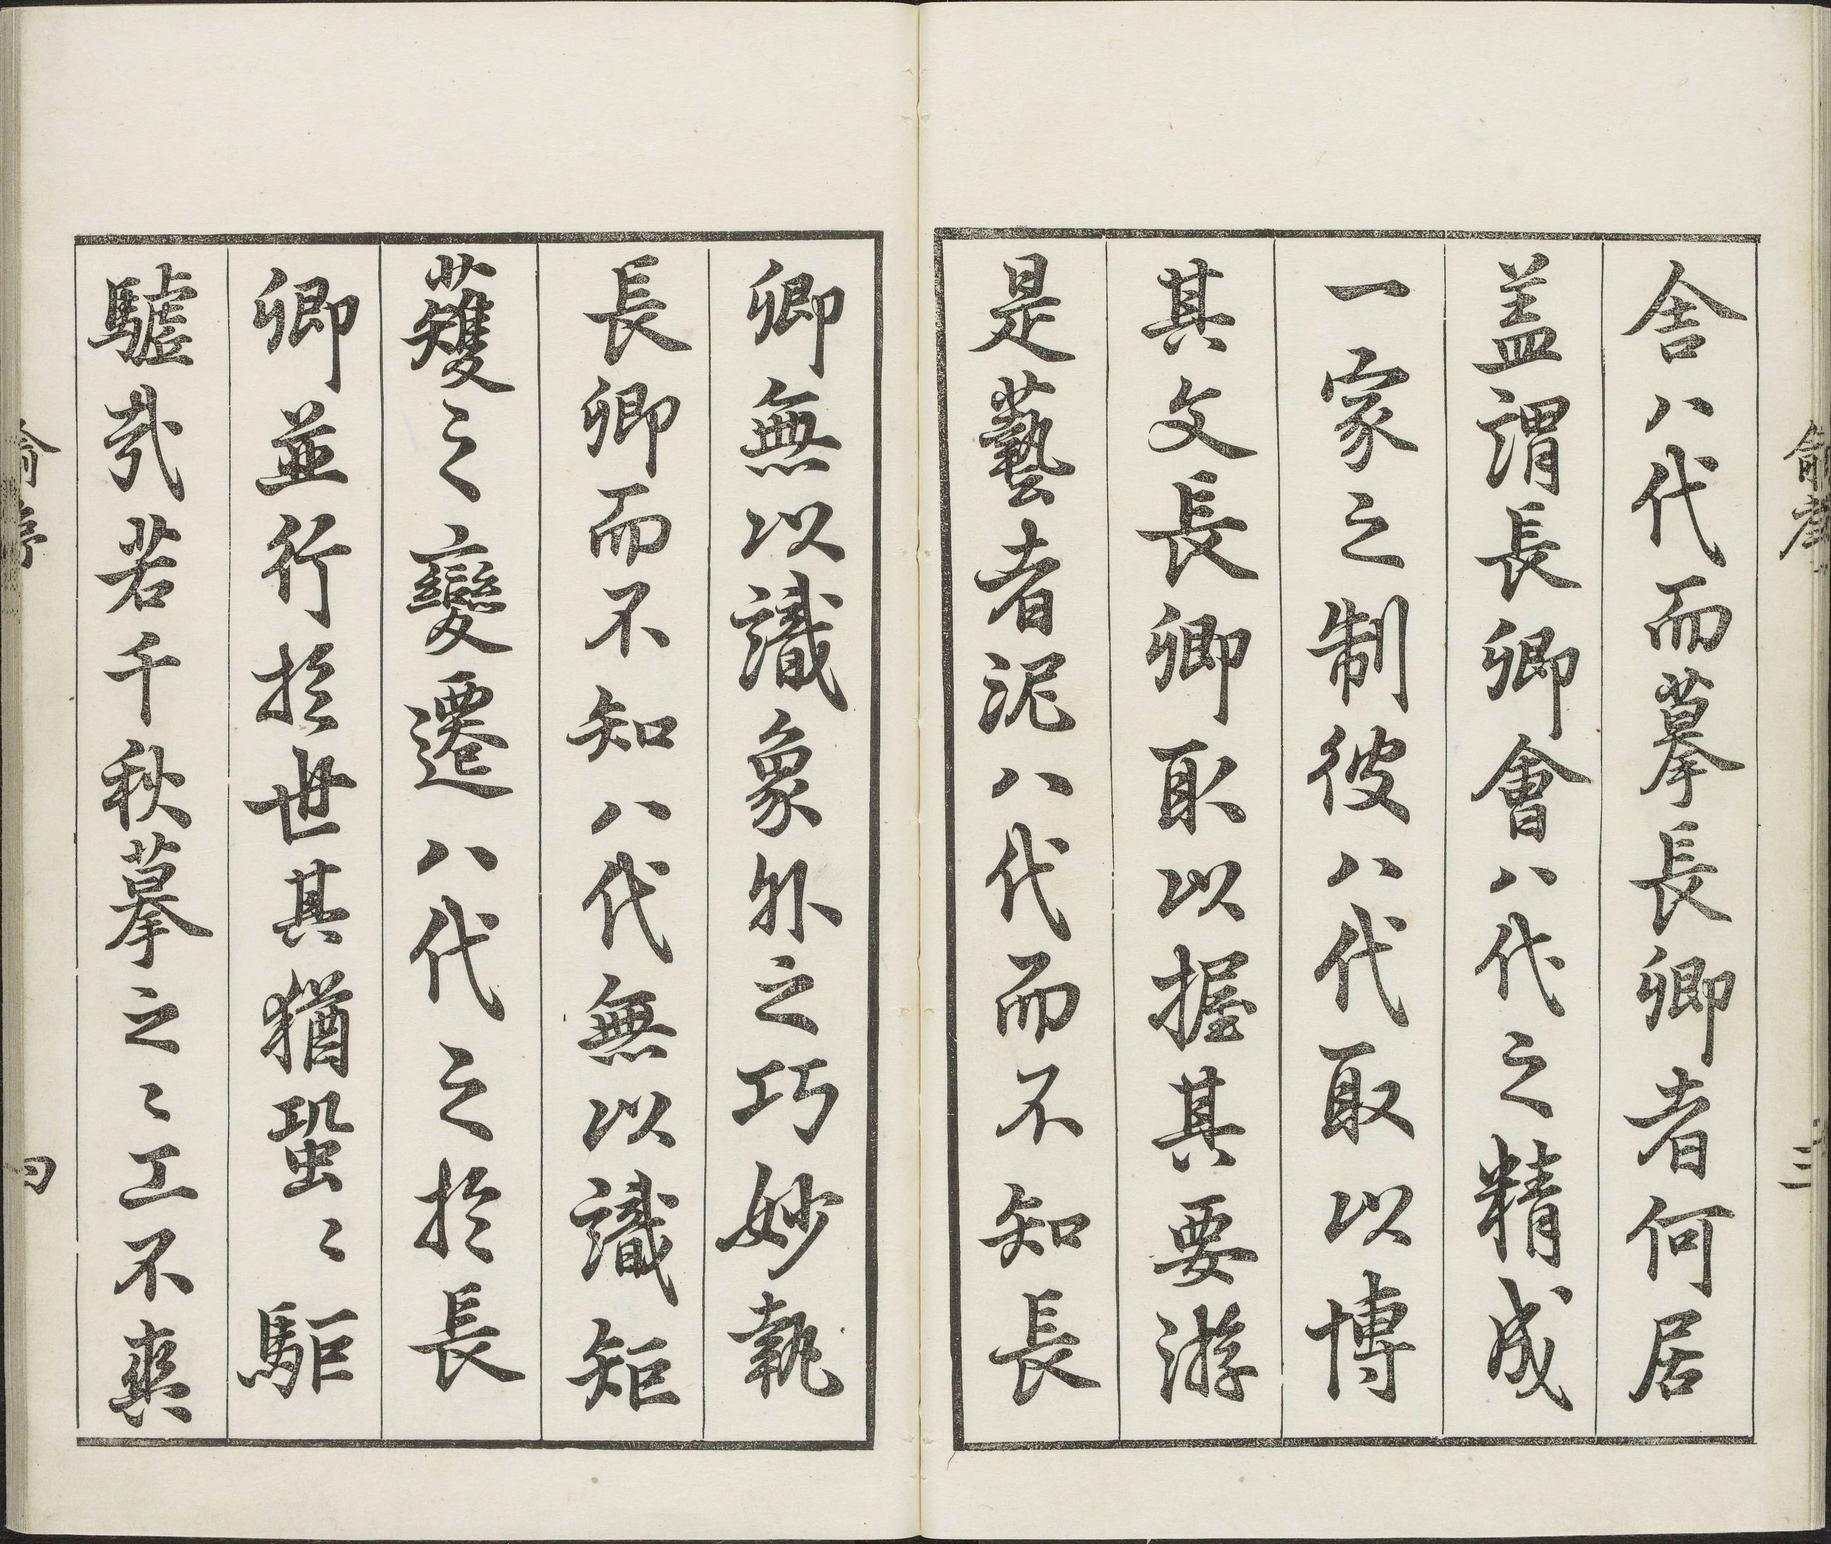 舍八代而摹長卿者何居
盖謂長卿會八代之精成
一家之制彼八代取以博
其文長卿取以握其要游
是藝者泥八代而不知長
卿無以識象外之巧妙執
長卿而不知八代無以識矩
蒦之變遷八代之於長
卿並行於世其猶蛩〻駏
驉㢤若千秋摹之〻工不爽
俞序
三
四